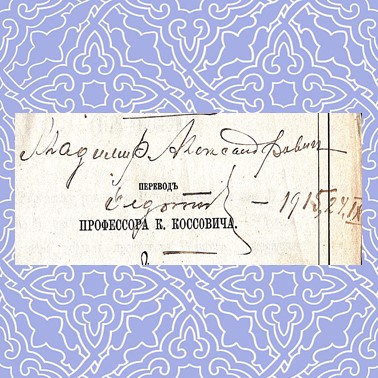 Владимир Александрович
ПЕРЕВОДЪ
– 1915, 24.IX
ПРОФЕССОРА К. КОССОВИЧА.